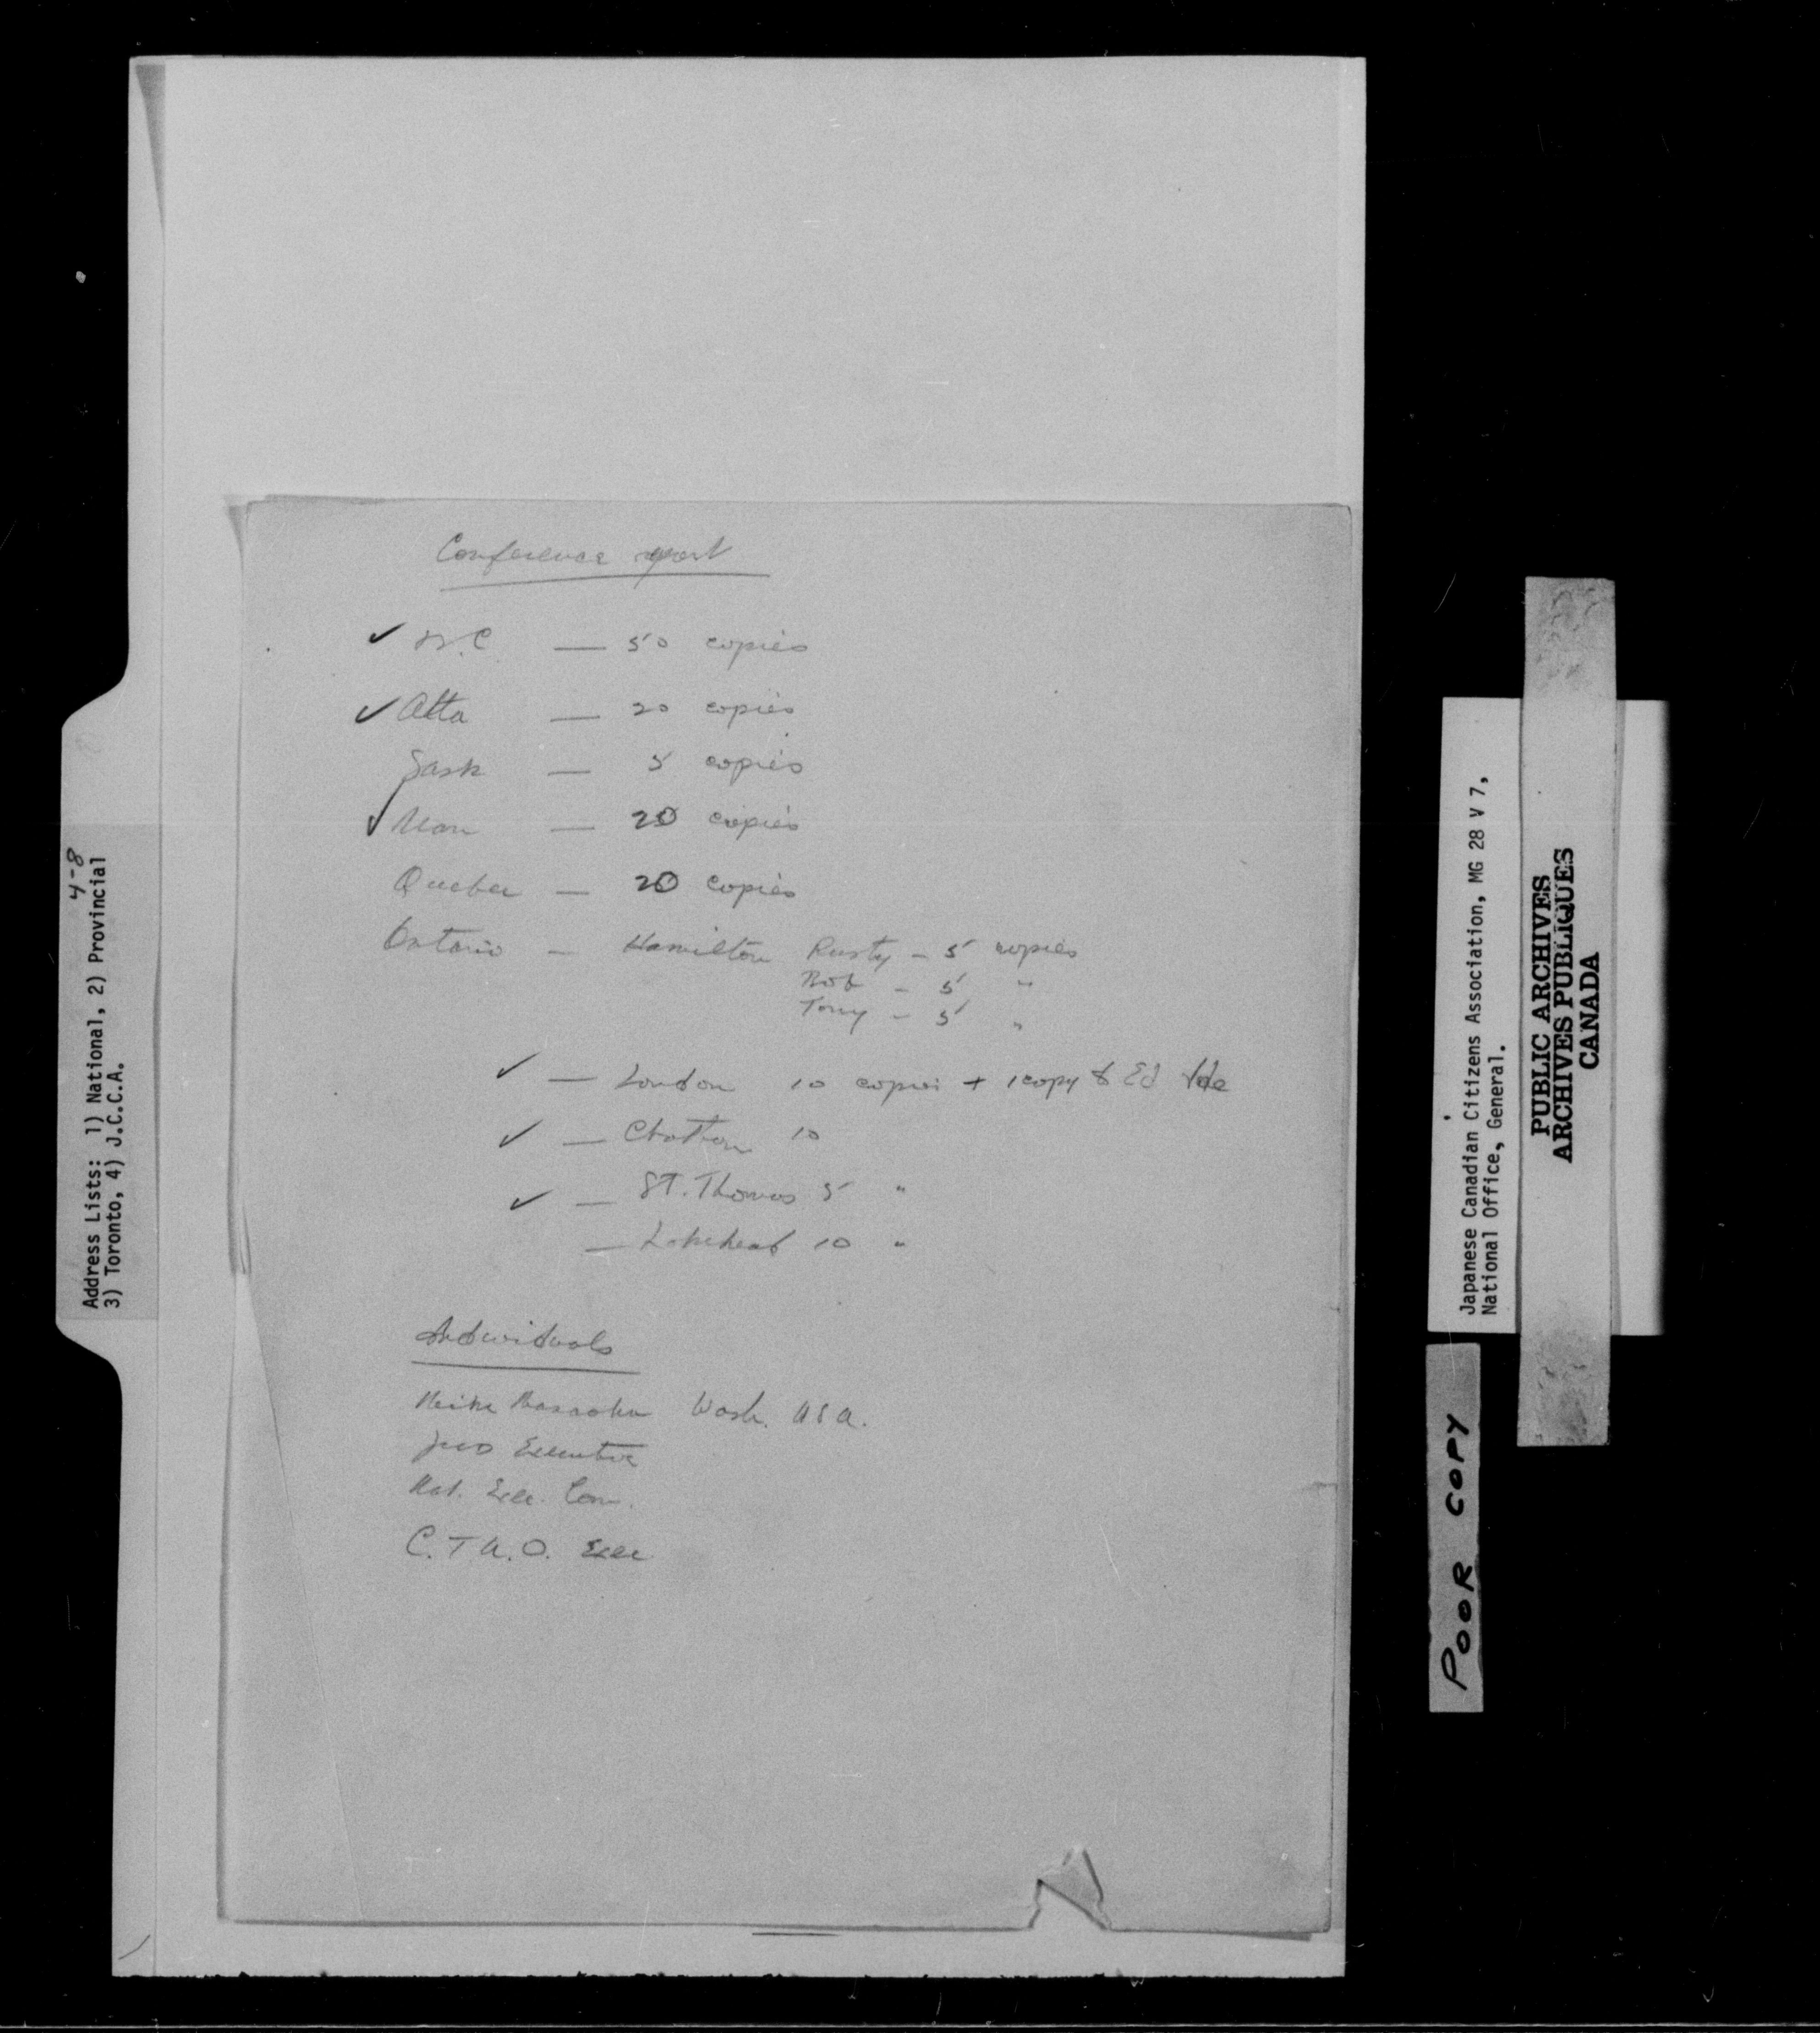 Conference report
✓ B.C. — 50 copies
✓ Alta — 20 copies
Sask — 5 copies
✓ Man — 20 copies
Quebec — 20 copies
Ontario — Hamilton Rusty - 5 copies
Bob - 5 "
Tony - 5 "
✓ — London 10 copies + 1 copy to Ed Ide
✓ — Chatham 10
✓ — St. Thomas 5 "
— Lakehead 10 "
Individuals
Masaoka Wash. USA.
Executive
Nat. Exec. Com.
C.T.A.O. Exec
4-8
Address Lists: 1) National, 2) Provincial
3) Toronto, 4) J.C.C.A.
Japanese Canadian Citizens Association, MG 28 V 7,
National Office, General.
PUBLIC ARCHIVES
ARCHIVES PUBLIQUES
CANADA
POOR COPY